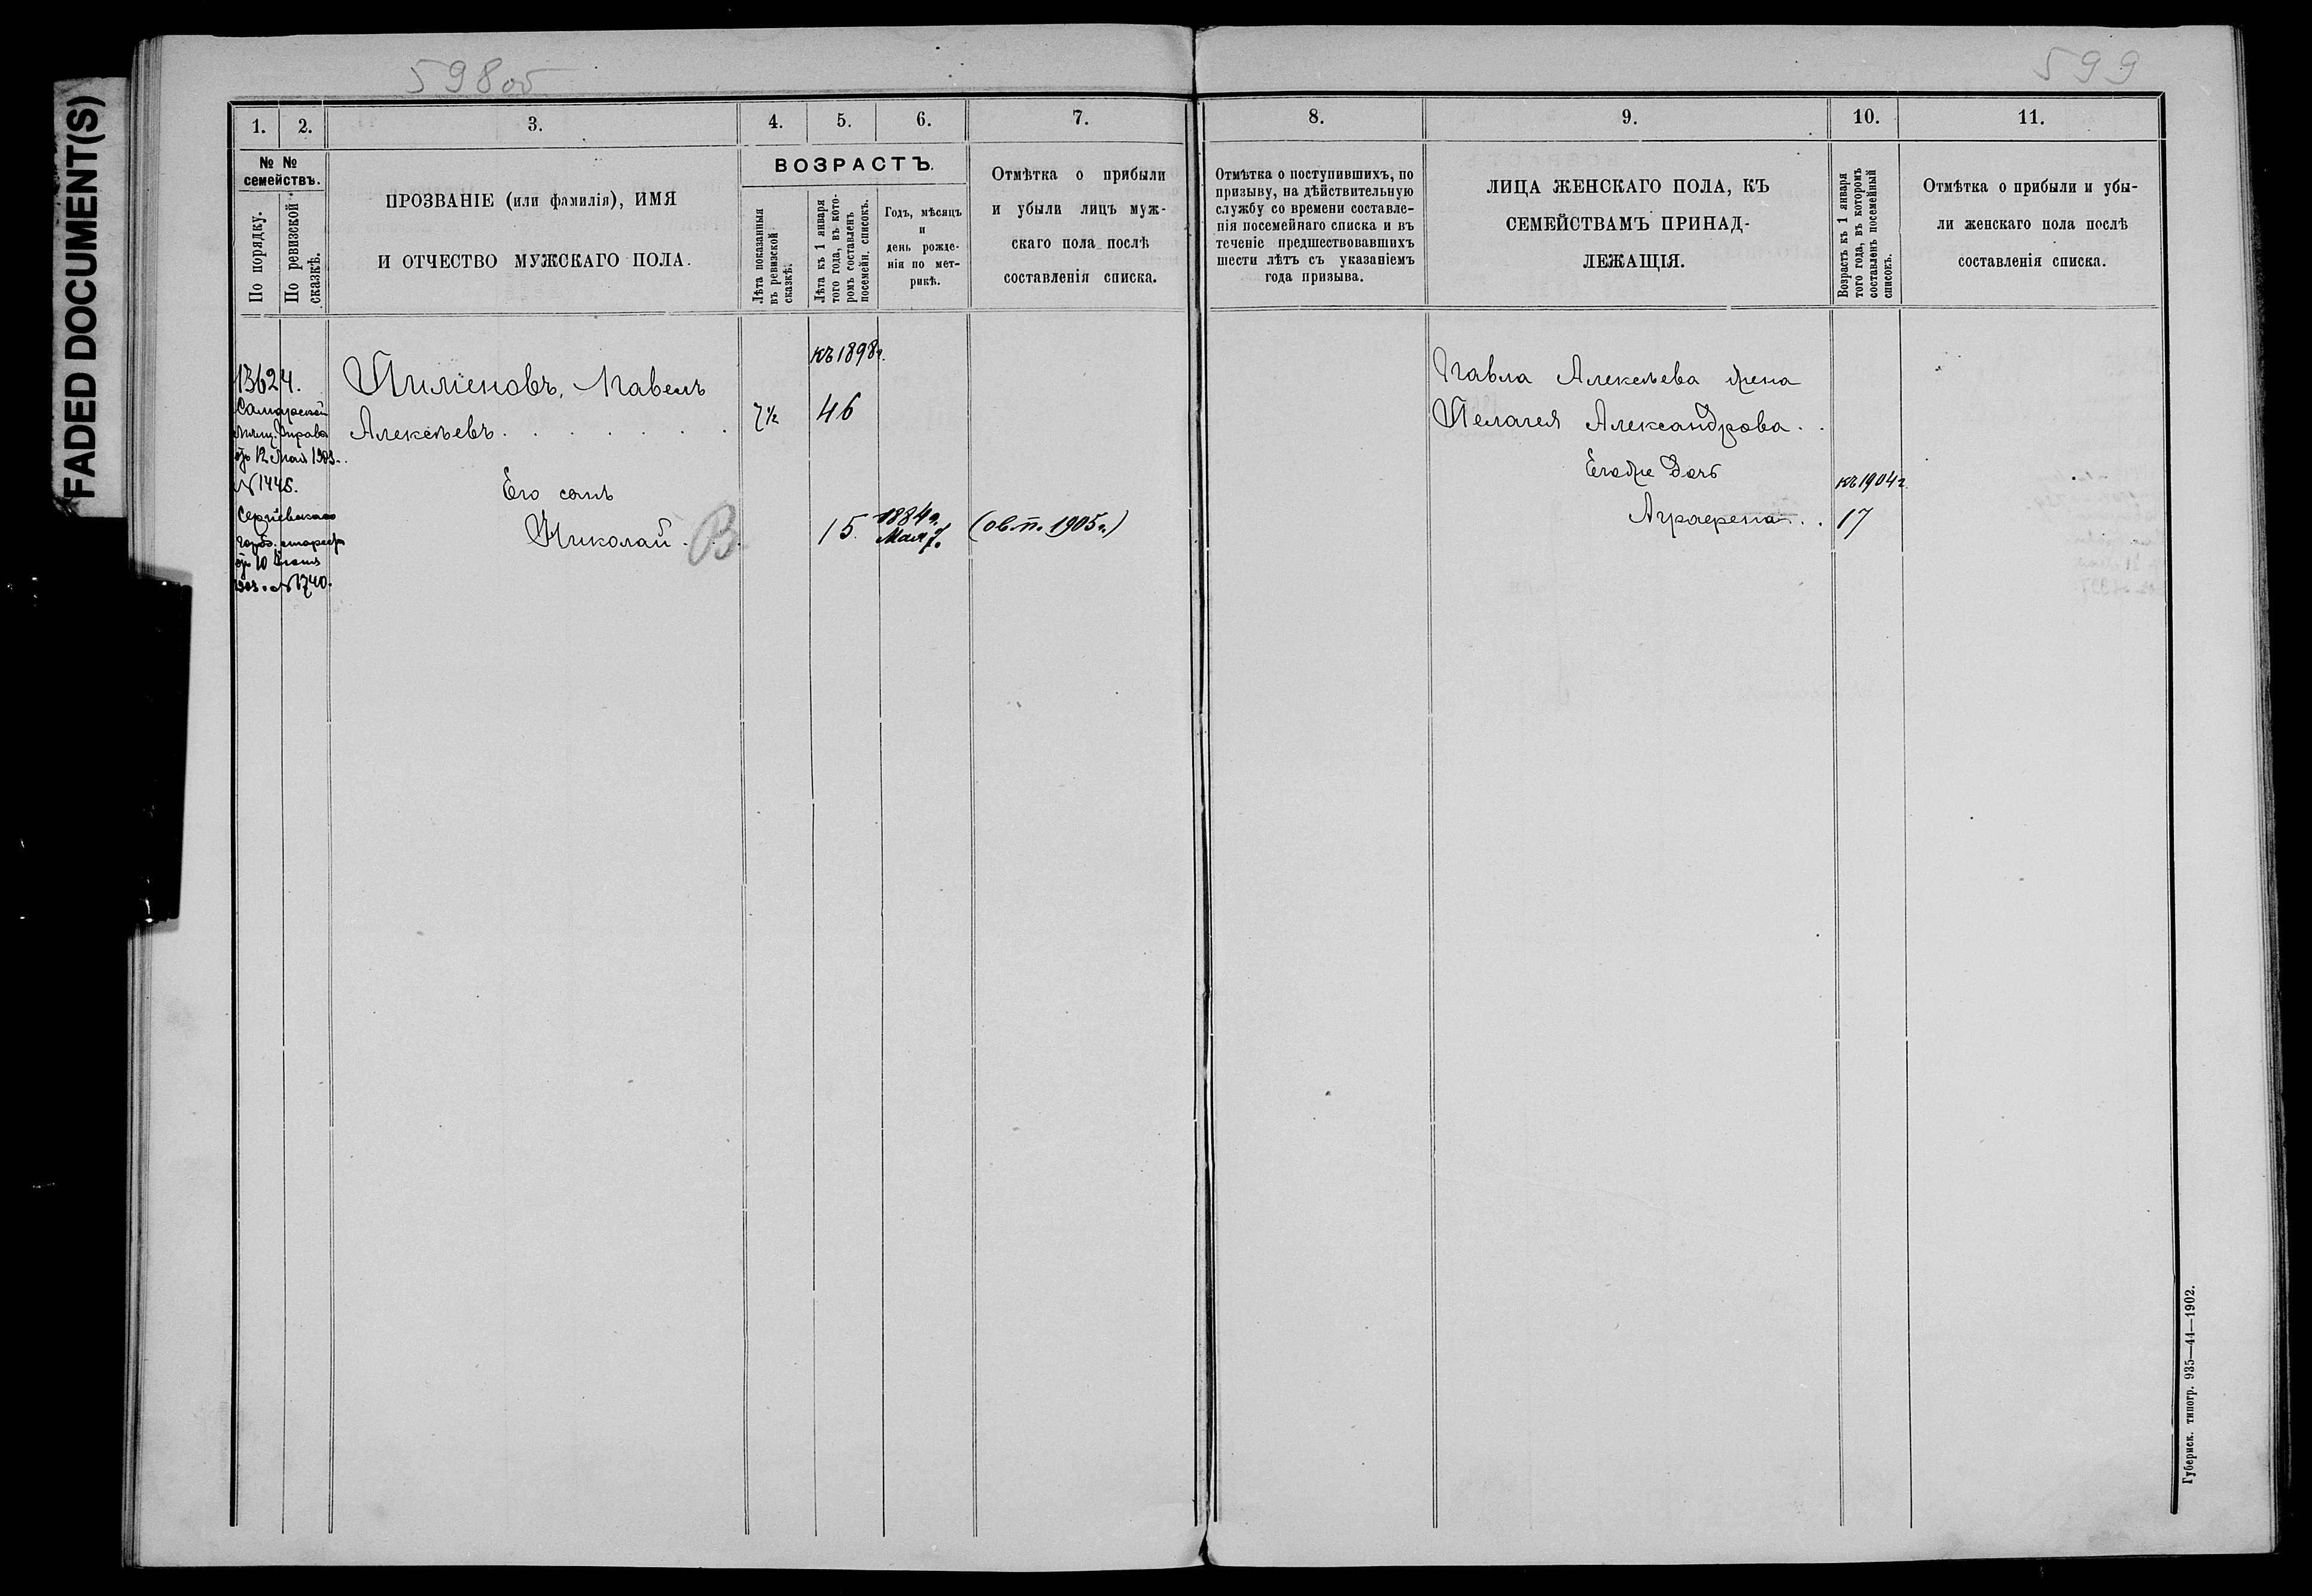 FADED DOCUMENT(S)
598об
599
1.
2.
3.
4.
5.
6.
7.
8.
9.
10.
11.
№ №
семействъ.
По порядку.
По ревизской
сказкѣ.
ПРОЗВАНІЕ (или фамилія), ИМЯ
И ОТЧЕСТВО МУЖСКАГО ПОЛА.
ВОЗРАСТЪ.
Лѣта показанныя
въ ревизской
сказкѣ.
Лѣта къ 1 января
того года, въ кото-
ромъ составленъ
посемейн. списокъ.
Годъ, мѣсяцъ
и
день рожде-
нія по мет-
рикѣ.
Отмѣтка о прибыли
и убыли лицъ муж-
скаго пола послѣ
составленія списка.
Отмѣтка о поступившихъ, по
призыву, на дѣйствительную
службу со времени составле-
нія посемейнаго списка и въ
теченіе предшествовавшихъ
шести лѣтъ съ указаніемъ
года призыва.
ЛИЦА ЖЕНСКАГО ПОЛА, КЪ
СЕМЕЙСТВАМЪ ПРИНАД-
ЛЕЖАЩІЯ.
Возрастъ къ 1 января
того года, въ которомъ
составленъ посемейный
списокъ.
Отмѣтка о прибыли и убы-
ли женскаго пола послѣ
составленія списка.
13624.
Самарской
Мѣщ. Управы
отъ 12 Мая 1903
№ 1445.
Сергіевскаго
город. старосты
отъ 10
1903. № 1740.
Пименовъ, Павелъ
Алексѣевъ
7½
къ 1898 г.
46
Его сынъ
Николай
В
15
1884 г.
Мая 7.
(ов. п. 1905 г.)
Павла Алексѣева жена
Пелагея Александрова
Его же дочь
Аграфена
къ 1904 г.
17
Губернск. типогр. 935—44—1902.